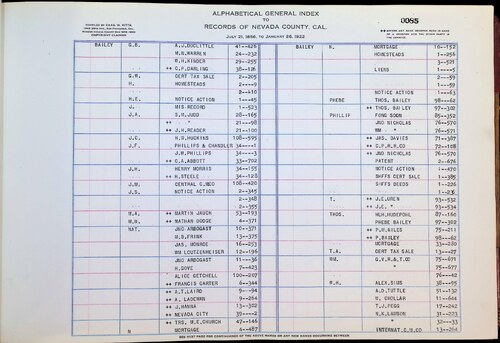 ALPHABETICAL GENERAL INDEX
TO
RECORDS OF NEVADA COUNTY, CAL.
JULY 21, 1856, TO JANUARY 28, 1922
0088
BAILEY G.B. A.J.DOOLITTLE 41--426
M.N.WARREN 24--232
W.H.KINDER 29--255
++ C.P.DARLING 38--126
G.W. CERT TAX SALE 2--205
H. HOMESTEADS 2----9
" 2--410
H.E. NOTICE ACTION 1---45
J. MIS RECORD 1--523
J.A. S.M.JUDD 28--165
++ " 21---98
++ J.H.READER 21--100
J.C. H.S.HUCKINS 108--595
J.F. PHILLIPS & CHANDLER 34----3
J.W.PHILLIPS 34----3
++ C.A.ABBOTT 33--702
J.H. HENRY MORRIS 34--155
++ H.STEELE 34--128
J.M. CENTRAL C.MCO 108--426
J.S. NOTICE ACTION 2--345
" 2--348
" 2--355
M.A. ++ MARTIN JAUCH 53--193
M.M. ++ NATHAN DODGE 9--371
NAT. JNO ARDOGAST 10--371
M.S.FRINK 13--375
JAS. MONROE 16--253
WM LOUTZENHEISER 12--196
JNO ARDOGAST 11---36
H.DOVE 7--423
ALICE GETCHELL 100--207
++ FRANCIS GARTER 6--344
++ A.T.LAIRD 9---94
++ A. LADEMAN 9--264
++ J.HANNA 13--302
++ NEVADA CITY 39----2
++ TRS. M.E.CHURCH 47--145
N MORTGAGE 4--487
BAILEY N. MORTGAGE 10--152
HOMESTEADS 1--236
" 3--531
LIENS 1----5
" 2---59
" 1---59
NOTICE ACTION 1---63
PHEBE THOS. BAILEY 98---62
++ THOS. BAILEY 97--302
PHILLIP FONG SOON 85--352
JNO NICHOLAS 76--570
WM " 76--571
++ JAS. DAVIES 71--387
++ C.P.R.R.CO 72--108
++ JNO NICHOLAS 76--570
PATENT 2--676
NOTICE ACTION 1--470
SHFFS CERT SALE 1--385
SHFFS DEEDS 1--226
" 1--236
T. ++ J.E.OREN 93--532
++ J.E. " 93--534
THOS. WLH.HUDEPOHL 87--160
PHEBE BAILEY 97--302
++ F.H.MILES 75--211
++ P.BAILEY 98---62
MORTGAGE 33--220
T.A. CERT TAX SALE 13---27
WM. G.Y.M.& T.CO 75--671
" 75--677
" 76---42
W.H. ALEX.SIMS 88---95
A.B.TUTTLE 51--132
U. CHOLLAR 11--644
T.J.PEGG 17--242
D.E.LADSON 31--223
" 33---53
INTERNAT.C.M.CO 13--264